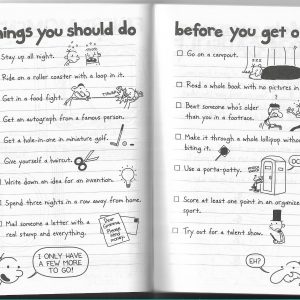 hings you should do
Stay up all night.
Ride on a roller coaster with a loop in it.
Get in a food fight.
Get an autograph from a famous person.
Get a hole-in-one in miniature golf.
Give yourself a haircut.
Write down an idea for an invention.
Spend three nights in a row away from home.
Mail someone a letter with a
real stamp and everything.
Dear
Grandma,
Please
send
money.
I ONLY HAVE
A FEW MORE
TO GO!
before you get o
Go on a campout.
Read a whole book with no pictures in
Beat someone who's older
than you in a footrace.
Make it through a whole lollipop without
biting it.
Use a porta-potty.
OCC
Score at least one point in an organized
sport.
Try out for a talent show.
EH?